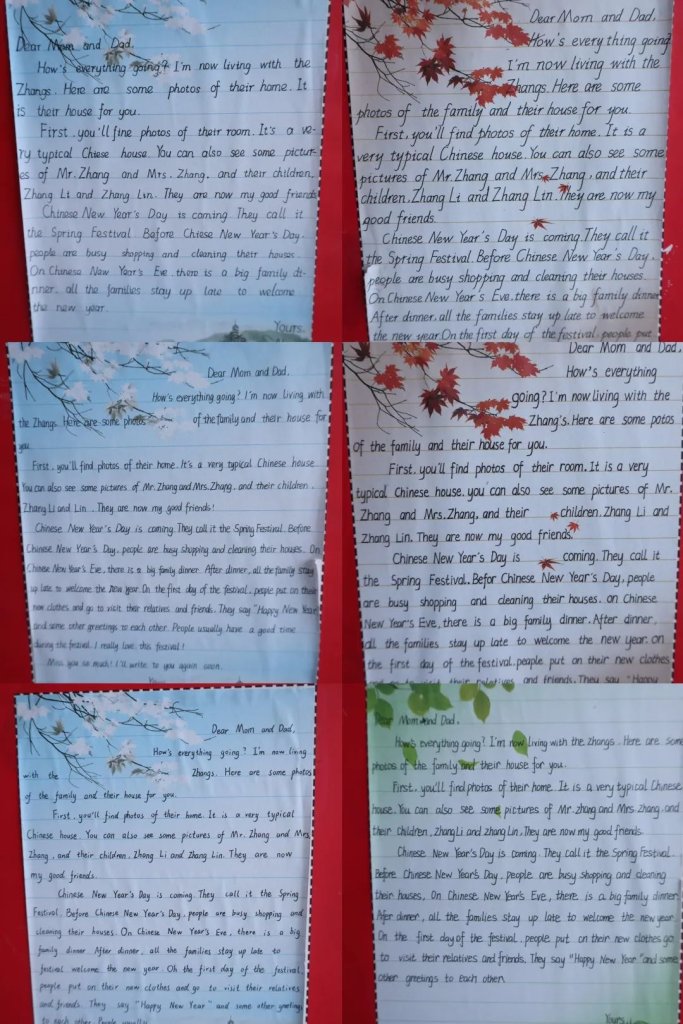 Dear Mom and Dad,
How's everything going? I'm now living with the
Zhangs. Here are some photos of their home. It
is their house for you.
First, you'll fine photos of their room. It's a ve-
ry typical Chiese house. You can also see some pictur-
es of Mr. Zhang and Mrs. Zhang, and their children,
Zhang Li and Zhang Lin. They are now my good friends
Chinese New Year's Day is coming. They call it
the Spring Festival. Before Chiese New Year's Day,
people are busy shopping and cleaning their houses.
On Chinese Naw Year's Eve, there is a big family di-
nner. all the families stay up late to welcome
the new year.
Yours,
Dear Mom and Dad,
How's everything going
I'm now living with the
Zhangs. Here are some
photos of the family and their house for you.
First, you'll find photos of their home. It is a
very typical Chinese house. You can also see some
pictures of Mr. Zhang and Mrs. Zhang, and their
children, Zhang Li and Zhang Lin. They are now my
good friends.
Chinese New Year's Day is coming. They call it
the Spring Festival. Before Chinese New Year's Day,
people are busy shopping and cleaning their houses.
On Chinese New Year's Eve, there is a big family dinner
After dinner, all the families stay up late to welcome
the new year. On the first day of the festival, people put
Dear Mom and Dad,
How's everything going? I'm now living with
the Zhangs. Here are some photos of the family and their house for
you.
First, you'll find photos of their home. It's a very typical Chinese house
You can also see some pictures of Mr. Zhang and Mrs. Zhang, and their children,
Zhang Li and Lin. They are now my good friends!
Chinese New Year's Day is coming. They call it the Spring Festival. Before
Chinese New Year's Day, people are busy shopping and cleaning their houses. On
Chinese New Year's Eve, there is a big family dinner. After dinner, all the families stay
up late to welcome the new year. On the first day of the festival, people put on their
new clothes and go to visit their relatives and friends. They say "Happy New Year"
and some other greetings to each other. People usually have a good time
during the festival. I really love this festival!
Miss you so much! I'll write to you again soon.
Dear Mom and Dad,
How's everything
going? I'm now living with the
Zhang's. Here are some potos
of the family and their house for you.
First, you'll find photos of their room. It is a very
typical Chinese house. you can also see some pictures of Mr.
Zhang and Mrs. Zhang, and their children. Zhang Li and
Zhang Lin. They are now my good friends.
Chinese New Year's Day is coming. They call it
the Spring Festival. Befor Chinese New Year's Day, people
are busy shopping and cleaning their houses. on Chinese
New Year's Eve, there is a big family dinner. After dinner,
all the families stay up late to welcome the new year. on
the first day of the festival, people put on their new clothes
go to visit their relatives and friends. They say "Happy
Dear Mom and Dad,
How's everything going? I'm now living
with the Zhangs. Here are some photos
of the family and their house for you.
First, you'll find photos of their home. It is a very typical
Chinese house. You can also see some pictures of Mr. Zhang and Mrs
Zhang, and their children, Zhang Li and Zhang Lin. They are now
my good friends.
Chinese New Year's Day is coming. They call it the Spring
Festival. Before Chinese New Year's Day, people are busy shopping and
cleaning their houses. On Chinese New Year's Eve, there is a big
family dinner. After dinner, all the families stay up late to
festival welcome the new year. On the first day of the festival,
people put on their new clothes and go to visit their relatives
and friends. They say "Happy New Year" and some other greetings
to each other. People usually
Dear Mom and Dad,
How's everything going? I'm now living with the zhangs. Here are some
photos of the family and their house for you.
First, you'll find photos of their home. It is a very typical Chinese
house. You can also see some pictures of Mr. zhang and Mrs. Zhang, and
their Children, Zhang Li and zhang Lin. They are now my good friends.
Chinese New Year's Day is coming. They call it the Spring Festival.
Before Chinese New Year's Day, people are busy shopping and cleaning
their houses. On Chinese New Year's Eve, there is a big family dinner
After dinner, all the families stay up late to welcome the new year
On the first day of the festival, people put on their new clothes go
to visit their relatives and friends. They say "Happy New Year" and some
other greetings to each other.
Yours,